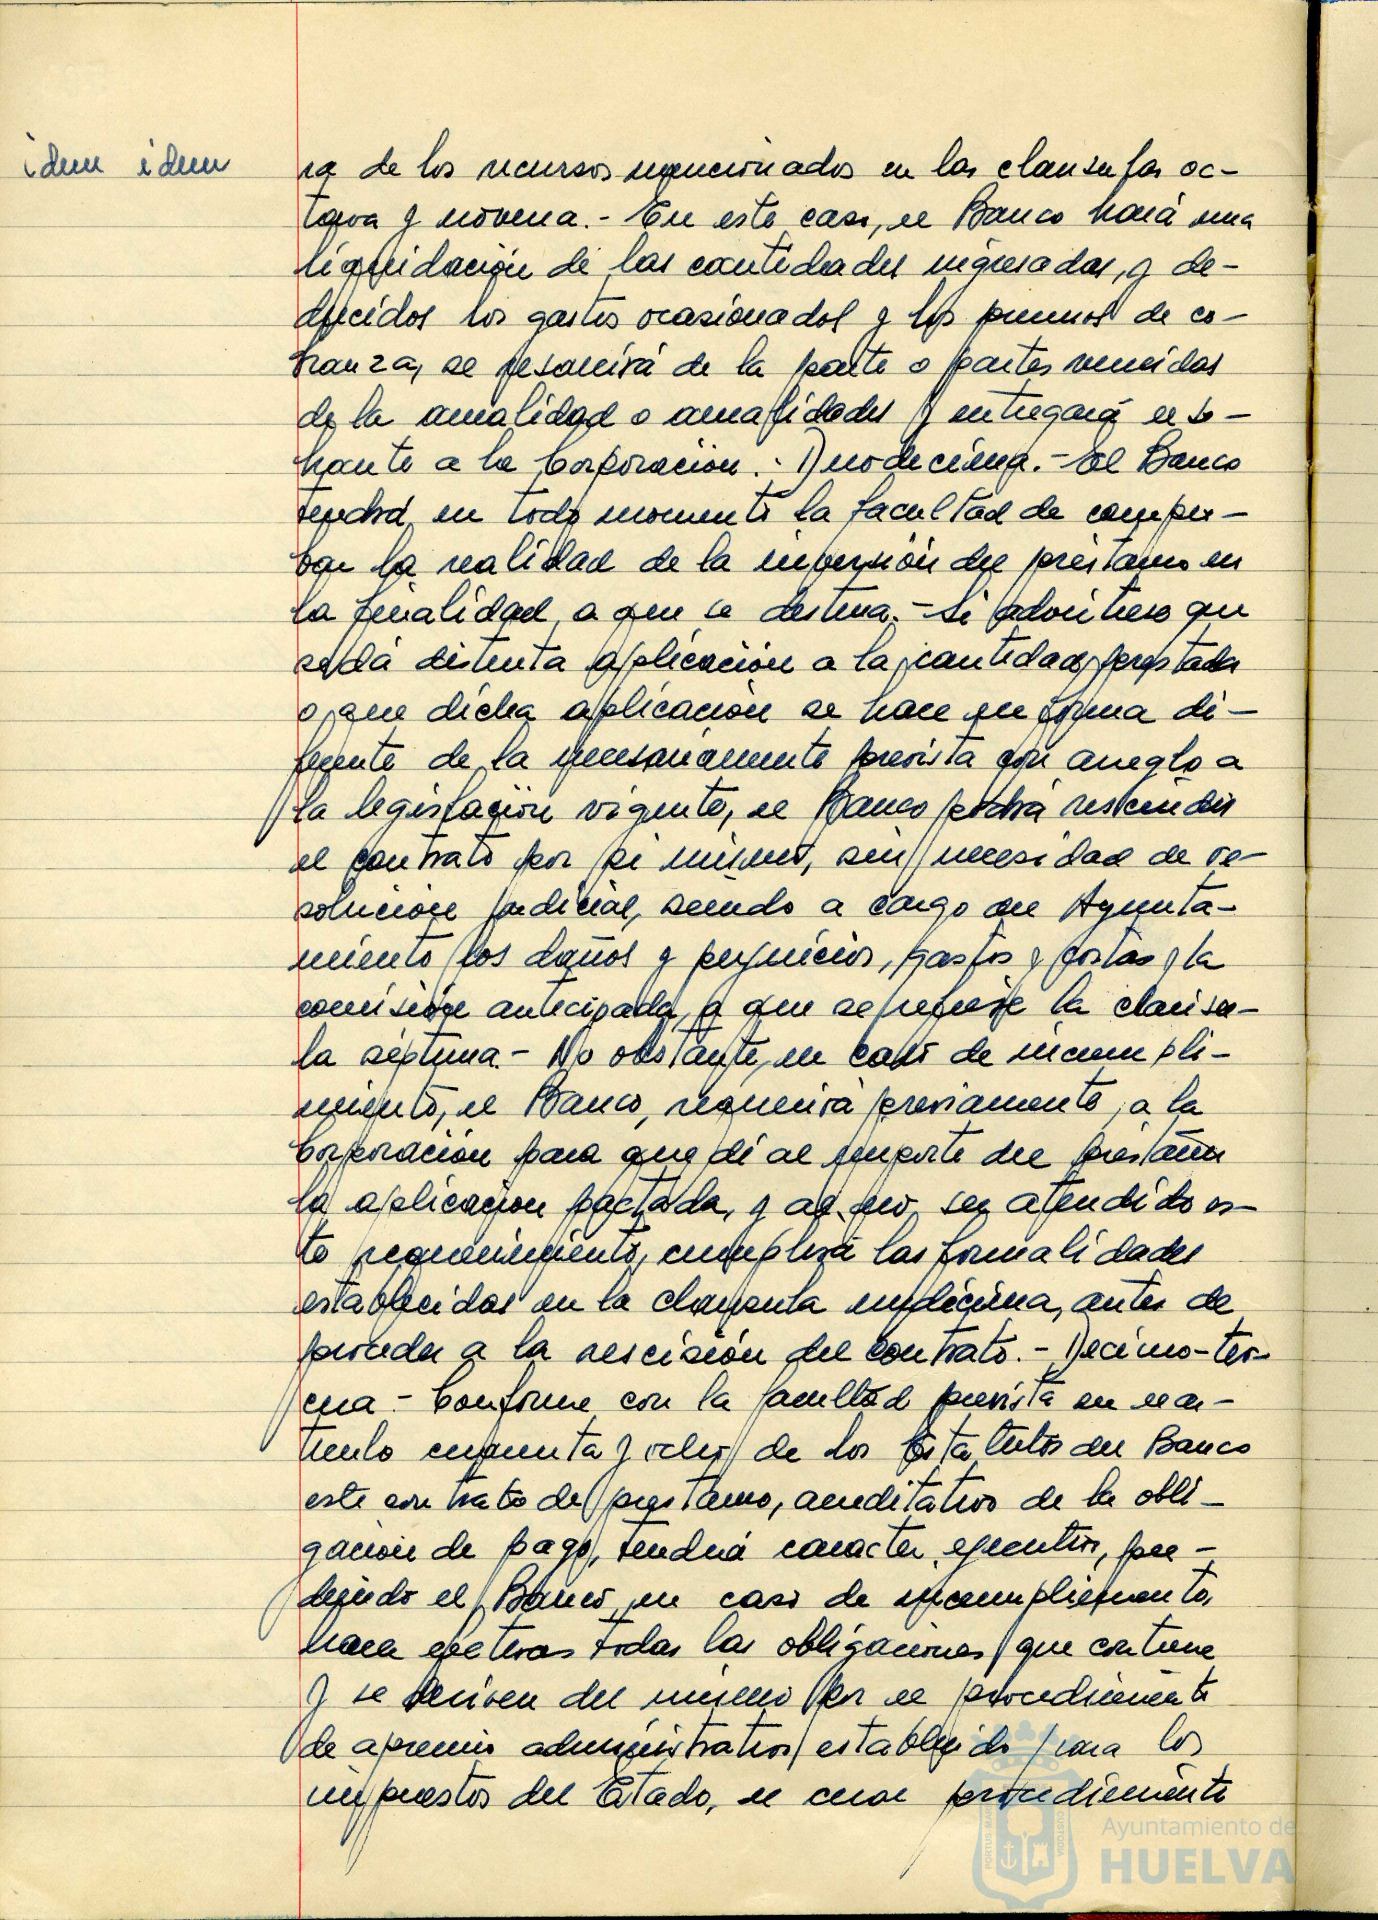 idem idem
ra de los recursos mencionados en las clausulas oc-
tava y novena.- En este caso, el Banco hará una
liquidación de las cantidades ingresadas, y de-
ducidos los gastos ocasionados y los premios de co-
branza, se resarcirá de la parte o partes vencidas
de la anualidad o anualidades y entregará el so-
brante a la Corporación.- Duodecima.- El Banco
tendrá en todo momento la facultad de compro-
bar la realidad de la inversión del préstamo en
la finalidad a que se destina.- Si advirtiese que
se dá distinta aplicación a la cantidad prestada
o que dicha aplicación se hace en forma di-
ferente de la necesariamente prevista con arreglo a
la legislación vigente, el Banco podrá rescindir
el contrato por si mismo, sin necesidad de re-
solucion judicial, siendo a cargo del Ayunta-
miento los daños y perjuicios, gastos y costas y la
comisión anticipada, a que se refiere la clausu-
la séptima.- No obstante, en caso de incumpli-
miento, el Banco, requerirá previamente, a la
Corporación para que dé al importe del préstamo
la aplicacion pactada, y al no ser atendido es-
te requerimiento, cumplirá las formalidades
establecidas en la clausula undécima, antes de
proceder a la rescisión del contrato.- Decimo-ter-
cera.- Conforme con la facultad prevista en el ar-
ticulo cincuenta y ocho de los Estatutos del Banco
este contrato de prestamo, acreditativo de la obli-
gación de pago, tendrá caracter ejecutivo, pu-
diendo el Banco en caso de incumplimiento,
hacer efectivas todas las obligaciones que contiene
y se deriven del mismo por el procedimiento
de apremio administrativo establecido para los
impuestos del Estado, el cual procedimiento
Ayuntamiento de
HUELVA